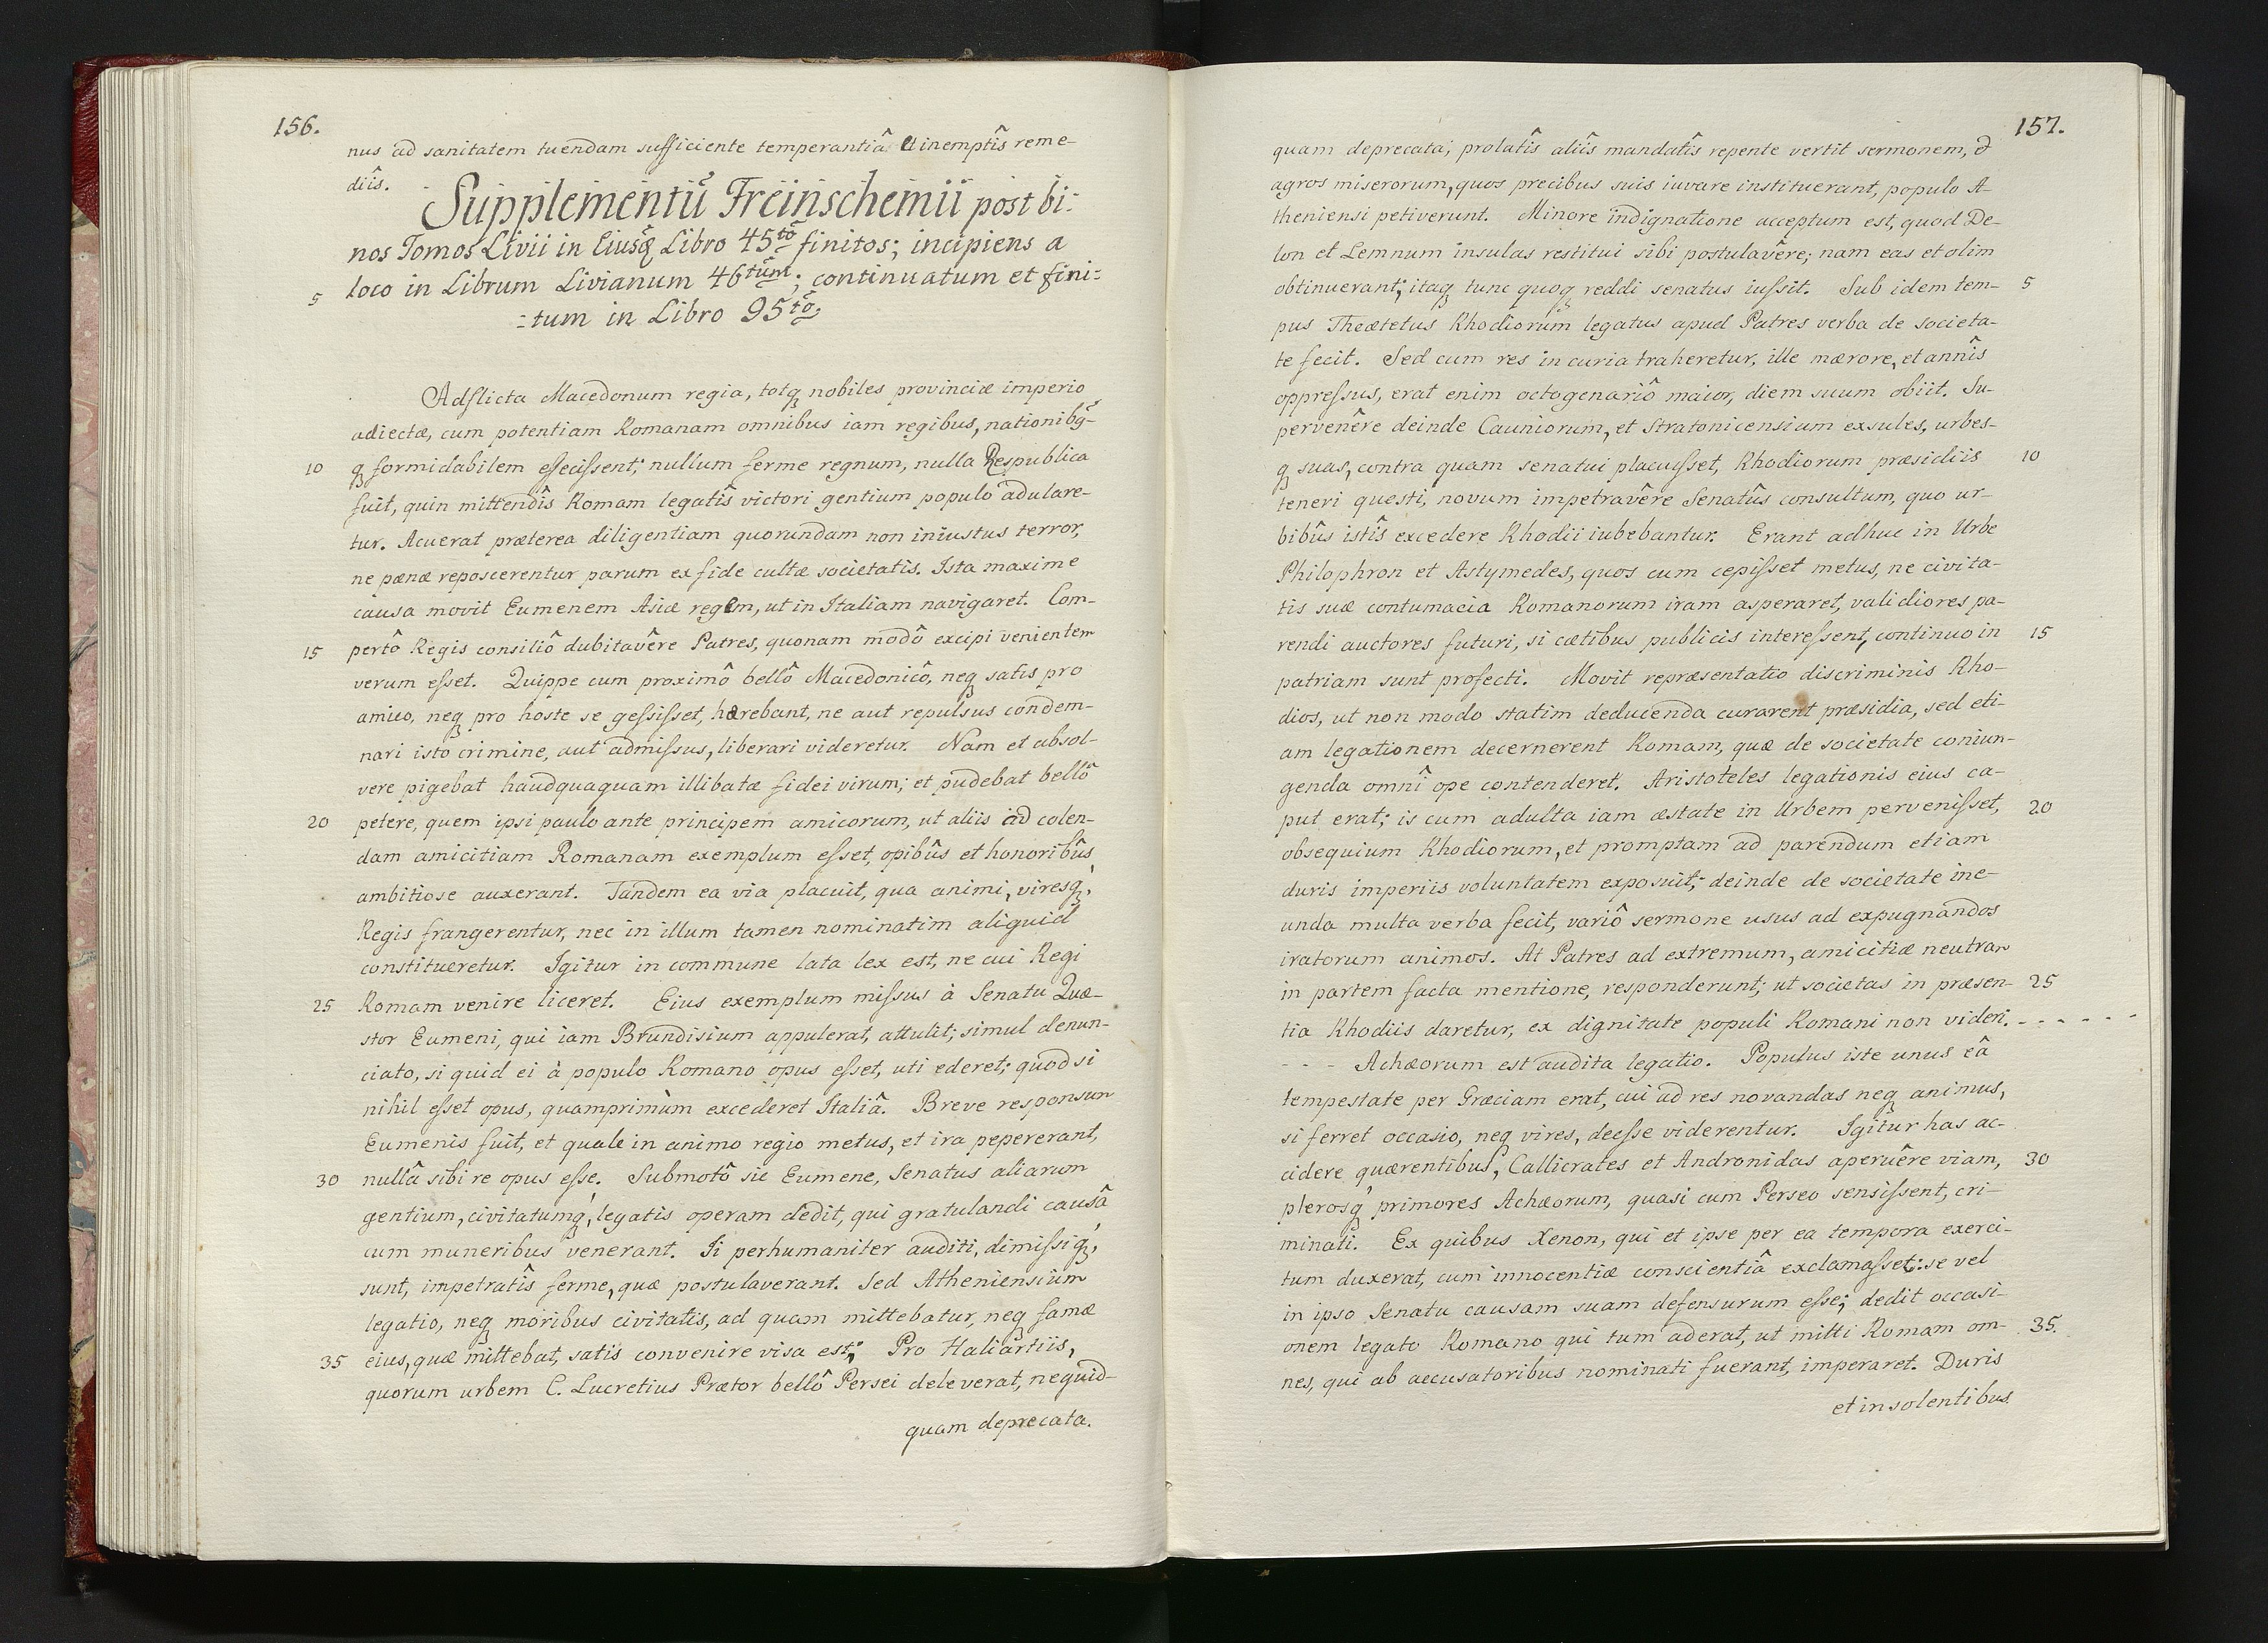 156.
nus ad sanitatem tuendam sufficiente temperantiâ et inemptîs reme-
diîs.
Supplementū Freinschemii post bi-
nos Tomos Livii in Eiusq Libro 45to finitos; incipiens a
loco in Librum Livianum 46tum; continuatum et fini-
5
-tum in Libro 95to.
Adflicta Macedonum regia, totq nobiles provinciæ imperio
adiectæ, cum potentiam Romanam omnibus iam regibus, nationibq-
10 q formidabilem effecissent; nullum ferme regnum, nulla Respublica
fuit, quin mittendîs Romam legatîs victori gentium populo adulare-
tur. Acuerat præterea diligentiam quorundam non iniustus terror,
ne pænæ reposcerentur parum ex fide cultæ societatis. Ista maxime
causa movit Eumenem Asiæ regem, ut in Italiam navigaret. Com-
15 pertô Regis consiliô dubitavêre Patres, quonam modô excipi venientem
verum esset. Quippe cum proximô bellô Macedonicô, neq satis pro
amico, neq pro hoste se gessisset, hærebant, ne aut repulsus condem-
nari isto crimine, aut admissus, liberari videretur. Nam et absol-
vere pigebat haudquaquam illibatæ fidei virum; et pudebat bellô
20 petere, quem ipsi paulo ante principem amicorum, ut aliis ad colen-
dam amicitiam Romanam exemplum esset, opibûs et honoribûs
ambitiose auxerant. Tandem ea via placuit, qua animi, viresq,
Regis frangerentur, nec in illum tamen nominatim aliquid
constitueretur. Igitur in commune lata lex est, ne cui Regi
25 Romam venire liceret. Eius exemplum missus à Senatu Quæ-
stor Eumeni, qui iam Brundisium appulerat, attulit; simul denun-
ciato, si quid ei à populo Romano opus esset, uti ederet; quod si
nihil esset opus, quamprimùm excederet Italiâ. Breve responsum
Eumenis fuit, et quale in animo regio metus, et ira pepererant,
30 nullâ sibi re opus esse. Submotô sic Eumene, Senatus aliarum
gentium, civitatumq, legatis operam dedit, qui gratulandi causâ
cum muneribus venerant. Ii perhumaniter auditi, dimissiq,
sunt, impetratîs ferme, quæ postulaverant. Sed Atheniensium
legatio, neq moribus civitatis, ad quam mittebatur, neq famæ
35 eius, quæ mittebat, satis convenire visa est; Pro Haliartiis,
quorum urbem C. Lucretius Prætor bellô Persei deleverat, nequid-
quam deprecata.
157.
quam deprecata; prolatîs aliîs mandatîs repente vertit sermonem, &
agros miserorum, quos precibus suis iuvare instituerant, populo A-
theniensi petiverunt. Minore indignatione acceptum est, quod De-
lon et Lemnum insulas restitui sibi postulavêre; nam eas et olim
obtinuerant; itaq tunc quoq reddi senatus iussit. Sub idem tem- 5
pus Theætetus Rhodiorum legatus apud Patres verba de societa-
te fecit. Sed cum res in curia traheretur, ille mærore, et annîs
oppressus, erat enim octogenariô maior, diem suum obiit. Su-
pervenêre deinde Cauniorum, et Stratonicensium exsules, urbes-
q suas, contra quam senatui placuisset, Rhodiorum præsidiis 10
teneri questi, novum impetravêre Senatûs consultum, quo ur-
bibûs istîs excedere Rhodii iubebantur. Erant adhuc in Urbe
Philophron et Astymedes, quos cum cepisset metus, ne civita-
tis suæ contumacia Romanorum iram asperaret, validiores pa-
rendi auctores futuri, si cætibus publicis interessent, continuo in 15
patriam sunt profecti. Movit repræsentatio discriminis Rho-
dios, ut non modo statim deducenda curarent præsidia, sed eti-
am legationem decernerent Romam, quæ de societate coniun-
genda omnî ope contenderet. Aristoteles legationis eius ca-
put erat; is cum adulta iam æstate in Urbem pervenisset, 20
obsequium Rhodiorum, et promptam ad parendum etiam
duris imperiis voluntatem exposuit; deinde de societate ine-
unda multa verba fecit, variô sermone usus ad expugnandos
iratorum animos. At Patres ad extremum, amicitiæ neutram
in partem facta mentione, responderunt; ut societas in præsen- 25
tia Rhodiis daretur, ex dignitate populi Romani non videri. - - - - - -
- - - Achæorum est audita legatio. Populus iste unus eâ
tempestate per Græciam erat, cui ad res novandas neq animus,
si ferret occasio, neq vires, deesse viderentur. Igitur has ac-
cidere quærentibus, Callicrates et Andronidas aperuêre viam, 30
plerosq primores Achæorum, quasi cum Perseo sensissent, cri-
minati. Ex quibus Xenon, qui et ipse per ea tempora exerci-
tum duxerat, cum innocentiæ conscientiâ exclamasset: se vel
in ipso Senatu causam suam defensurum esse; dedit occasi-
onem legato Romano qui tum aderat, ut mitti Romam om- 35.
nes, qui ab accusatoribus nominati fuerant, imperaret. Duris
et insolentibus.